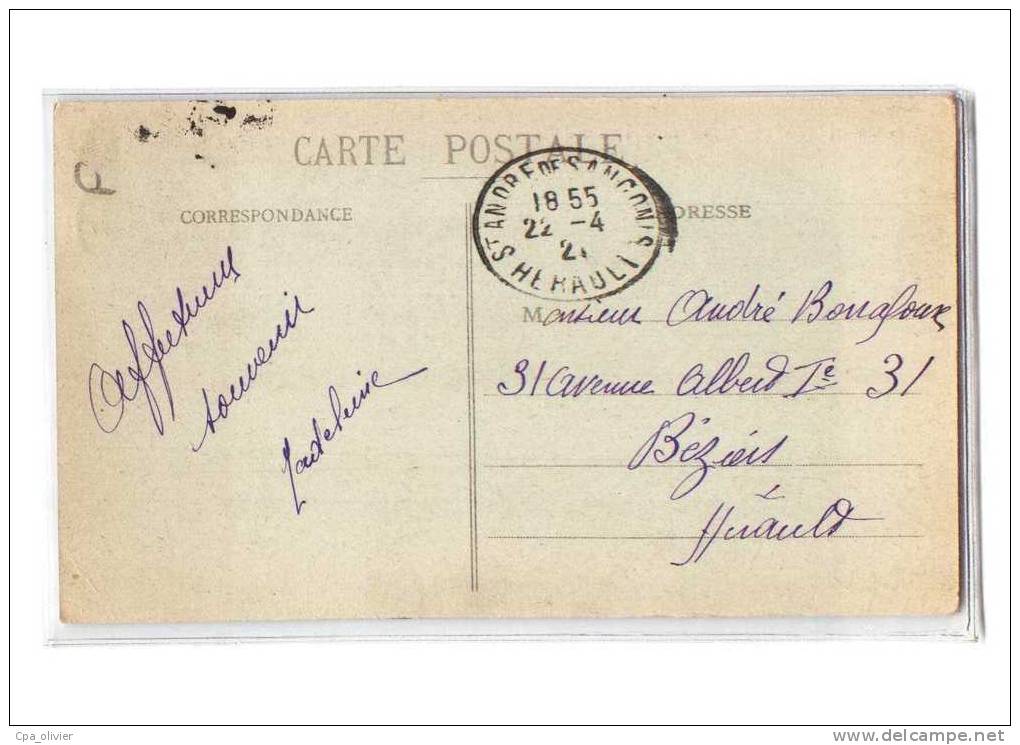 F
CARTE POSTALE
CORRESPONDANCE
ST ANDRE DE SANGONIS
18 55
22 -4
HERAULT
ADRESSE
Affectueux
souvenir
Monsieur André Bonafoux
31 avenue Albert Ie 31
Béziers
Hérault
Cpa_olivier
www.delcampe.net